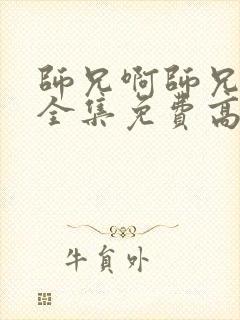 師兄啊師兄
全集免費高
牛員外